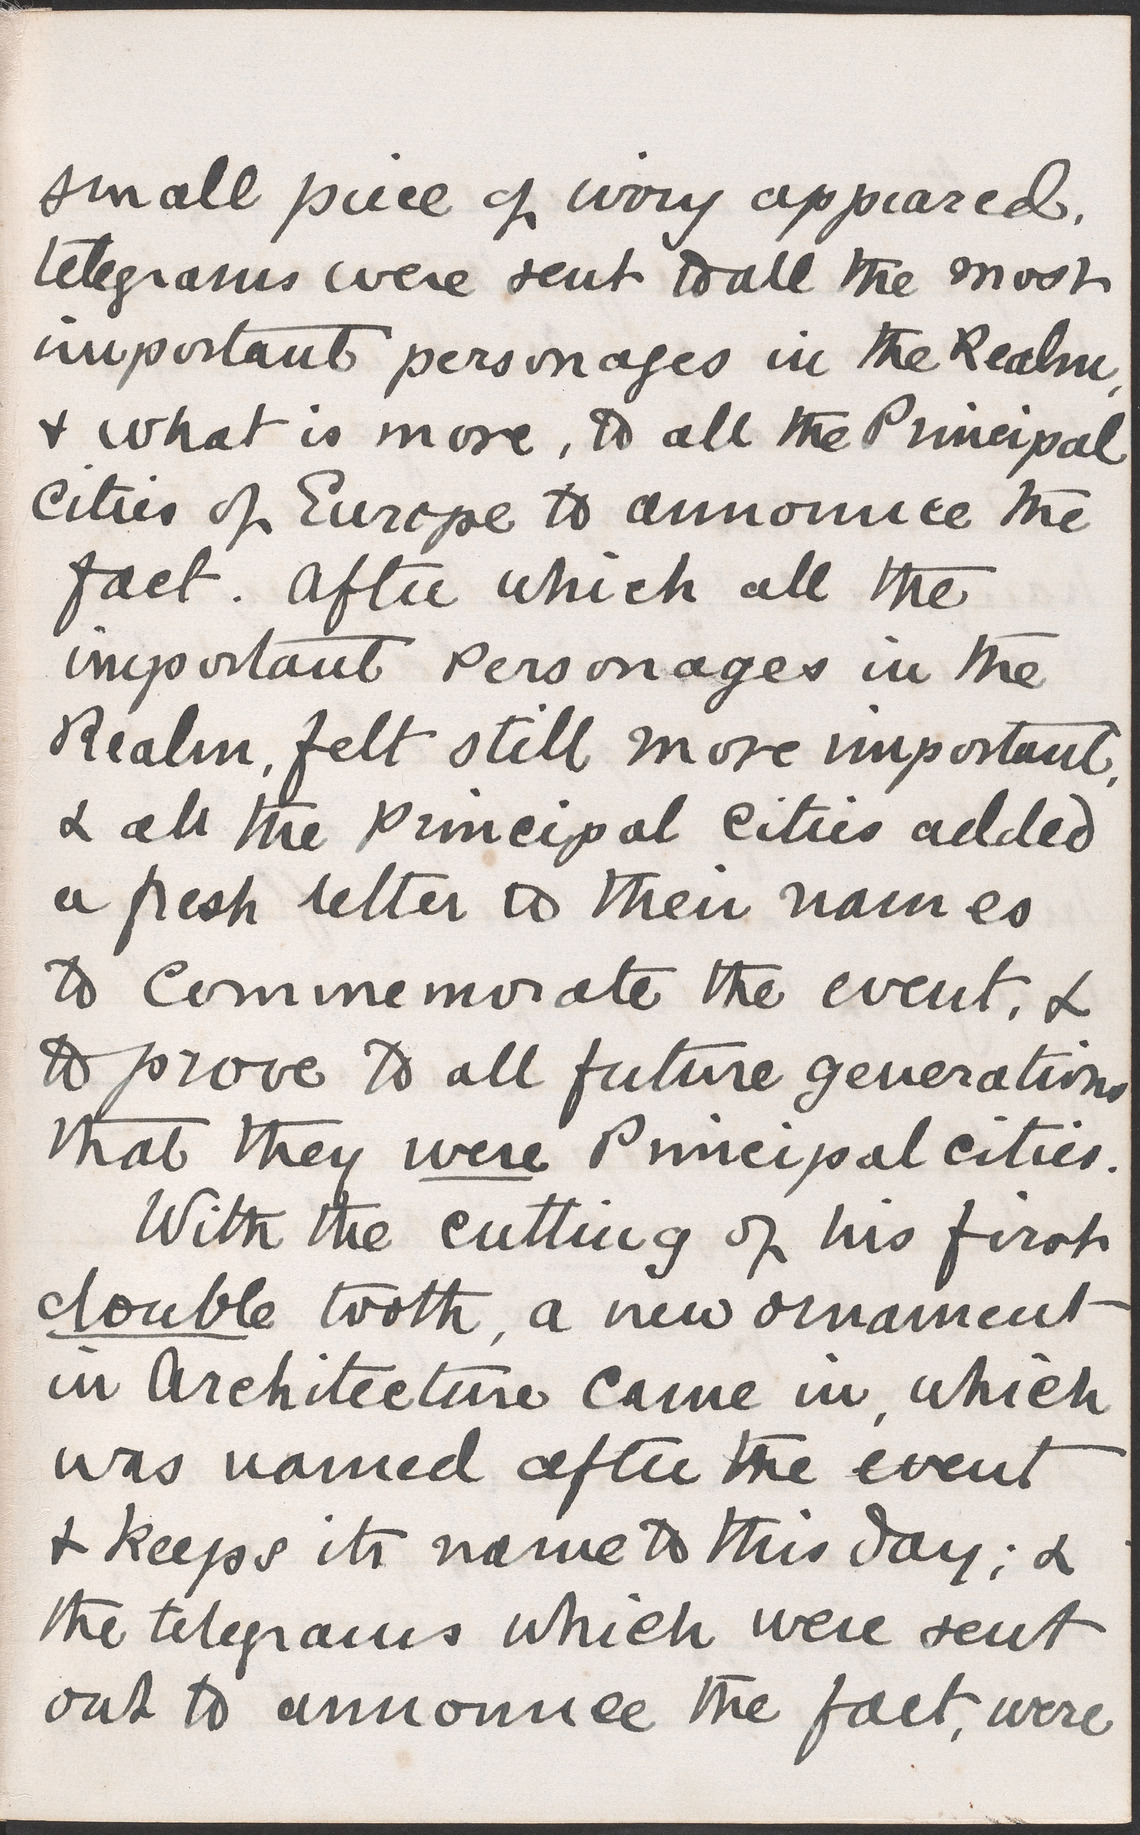 small piece of ivory appeared,
telegrams were sent to all the most
important personages in the Realm,
& what is more, to all the Principal
Cities of Europe to announce the
fact. After which all the
important Personages in the
Realm, felt still more important,
& all the Principal Cities added
a fresh letter to their names
to Commemorate the event, &
to prove to all future generations
that they were Principal cities.
With the cutting of his first
double tooth, a new ornament
in Architecture Came in, which
was named after the event
& keeps its name to this day; &
the telegrams which were sent
out to announce the fact, were